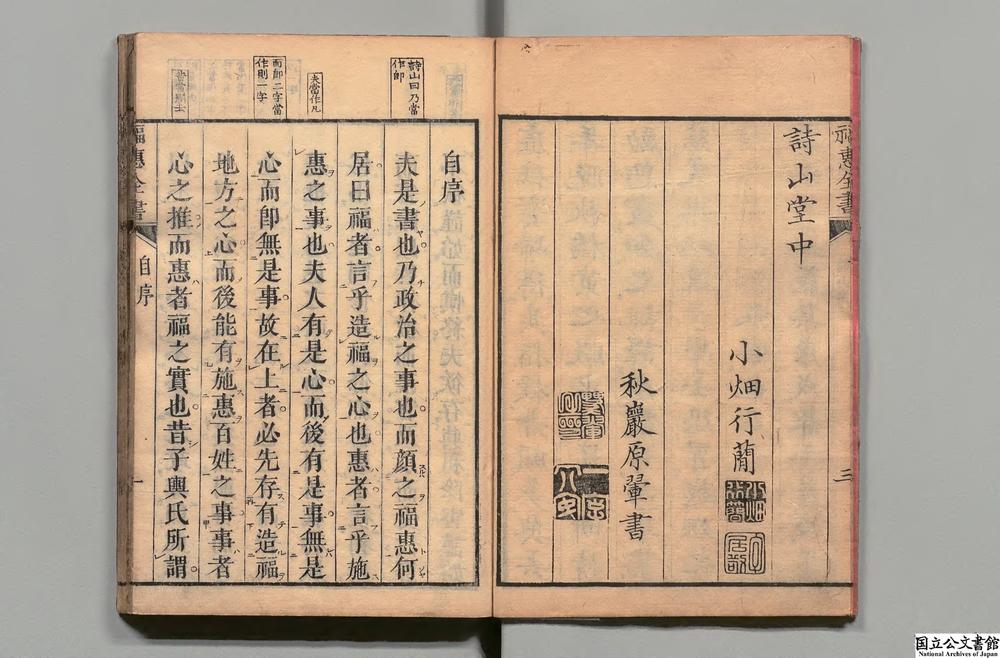 福惠全書
三
詩山堂中
小畑行蕑
小畑
行蕑
秋巖原翬書
詩山曰乃當
作卽
夫當作凡
而卽二字當
作則一字
自序
夫是書也乃政治之事也而顔之福惠何
居曰福者言乎造福之心也惠者言乎施
惠之事也夫人有是心而後有是事無是
心而卽無是事故在上者必先存有造福
地方之心而後能有施惠百姓之事事者
心之推而惠者福之實也昔子輿氏所謂
福惠全書
自序
一
国立公文書館
National Archives of Japan